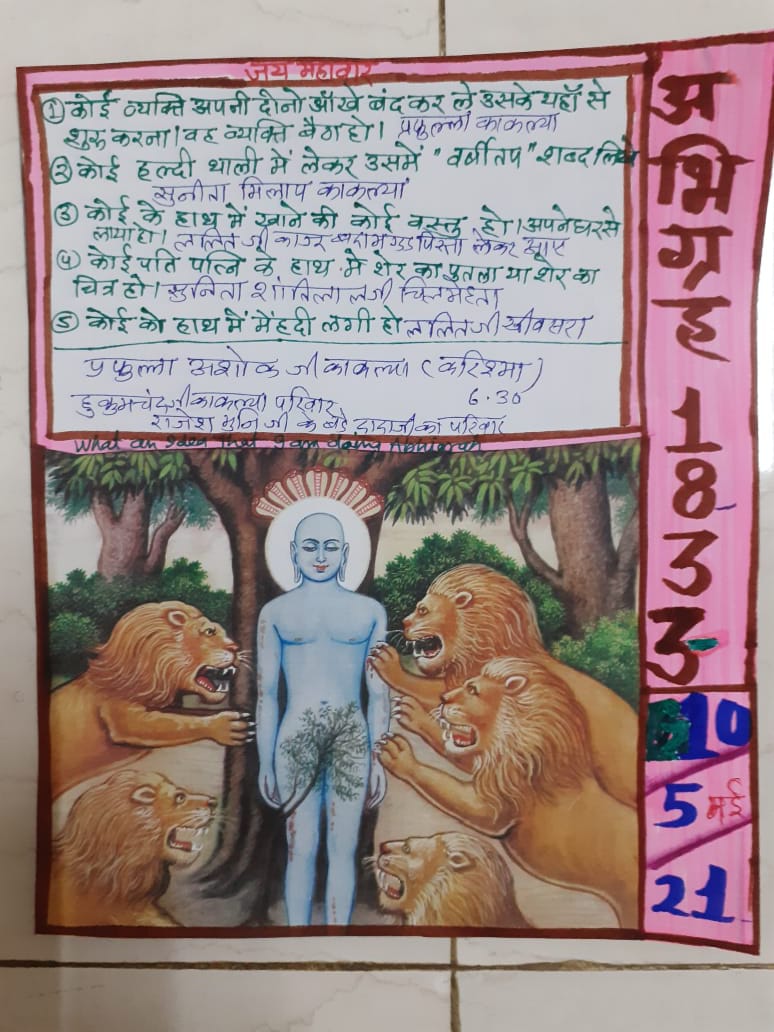 जय महावीर
① कोई व्यक्ति अपनी दोनो आँखे बंद कर ले उसके यहाँ से
शुरू करना। वह व्यक्ति बैठा हो। प्रफुल्ला काकल्या
② कोई हल्दी थाली में लेकर उसमें "वर्षीतप" शब्द लिखे
सुनीता मिलाप काकल्या
③ कोई के हाथ में खाने की कोई वस्तु हो। अपने घर से
लाया हो। ललित जी काजू बदाम पिस्ता लेकर आए
④ कोई पति पत्नि के हाथ में शेर का पुतला या शेर का
चित्र हो। सुनिता शांतिलालजी
⑤ कोई को हाथ में मेंहदी लगी हो ललितजी खींवसरा
प्रफुल्ला अशोक जी काकल्या (करिश्मा)
हुकुमचंदजी काकल्या परिवार 6.30
राजेश मुनि जी के बडे दादाजी का परिवार
What an Idea that I am doing Abhigrah
अभिग्रह 1833
10
5 मई
21